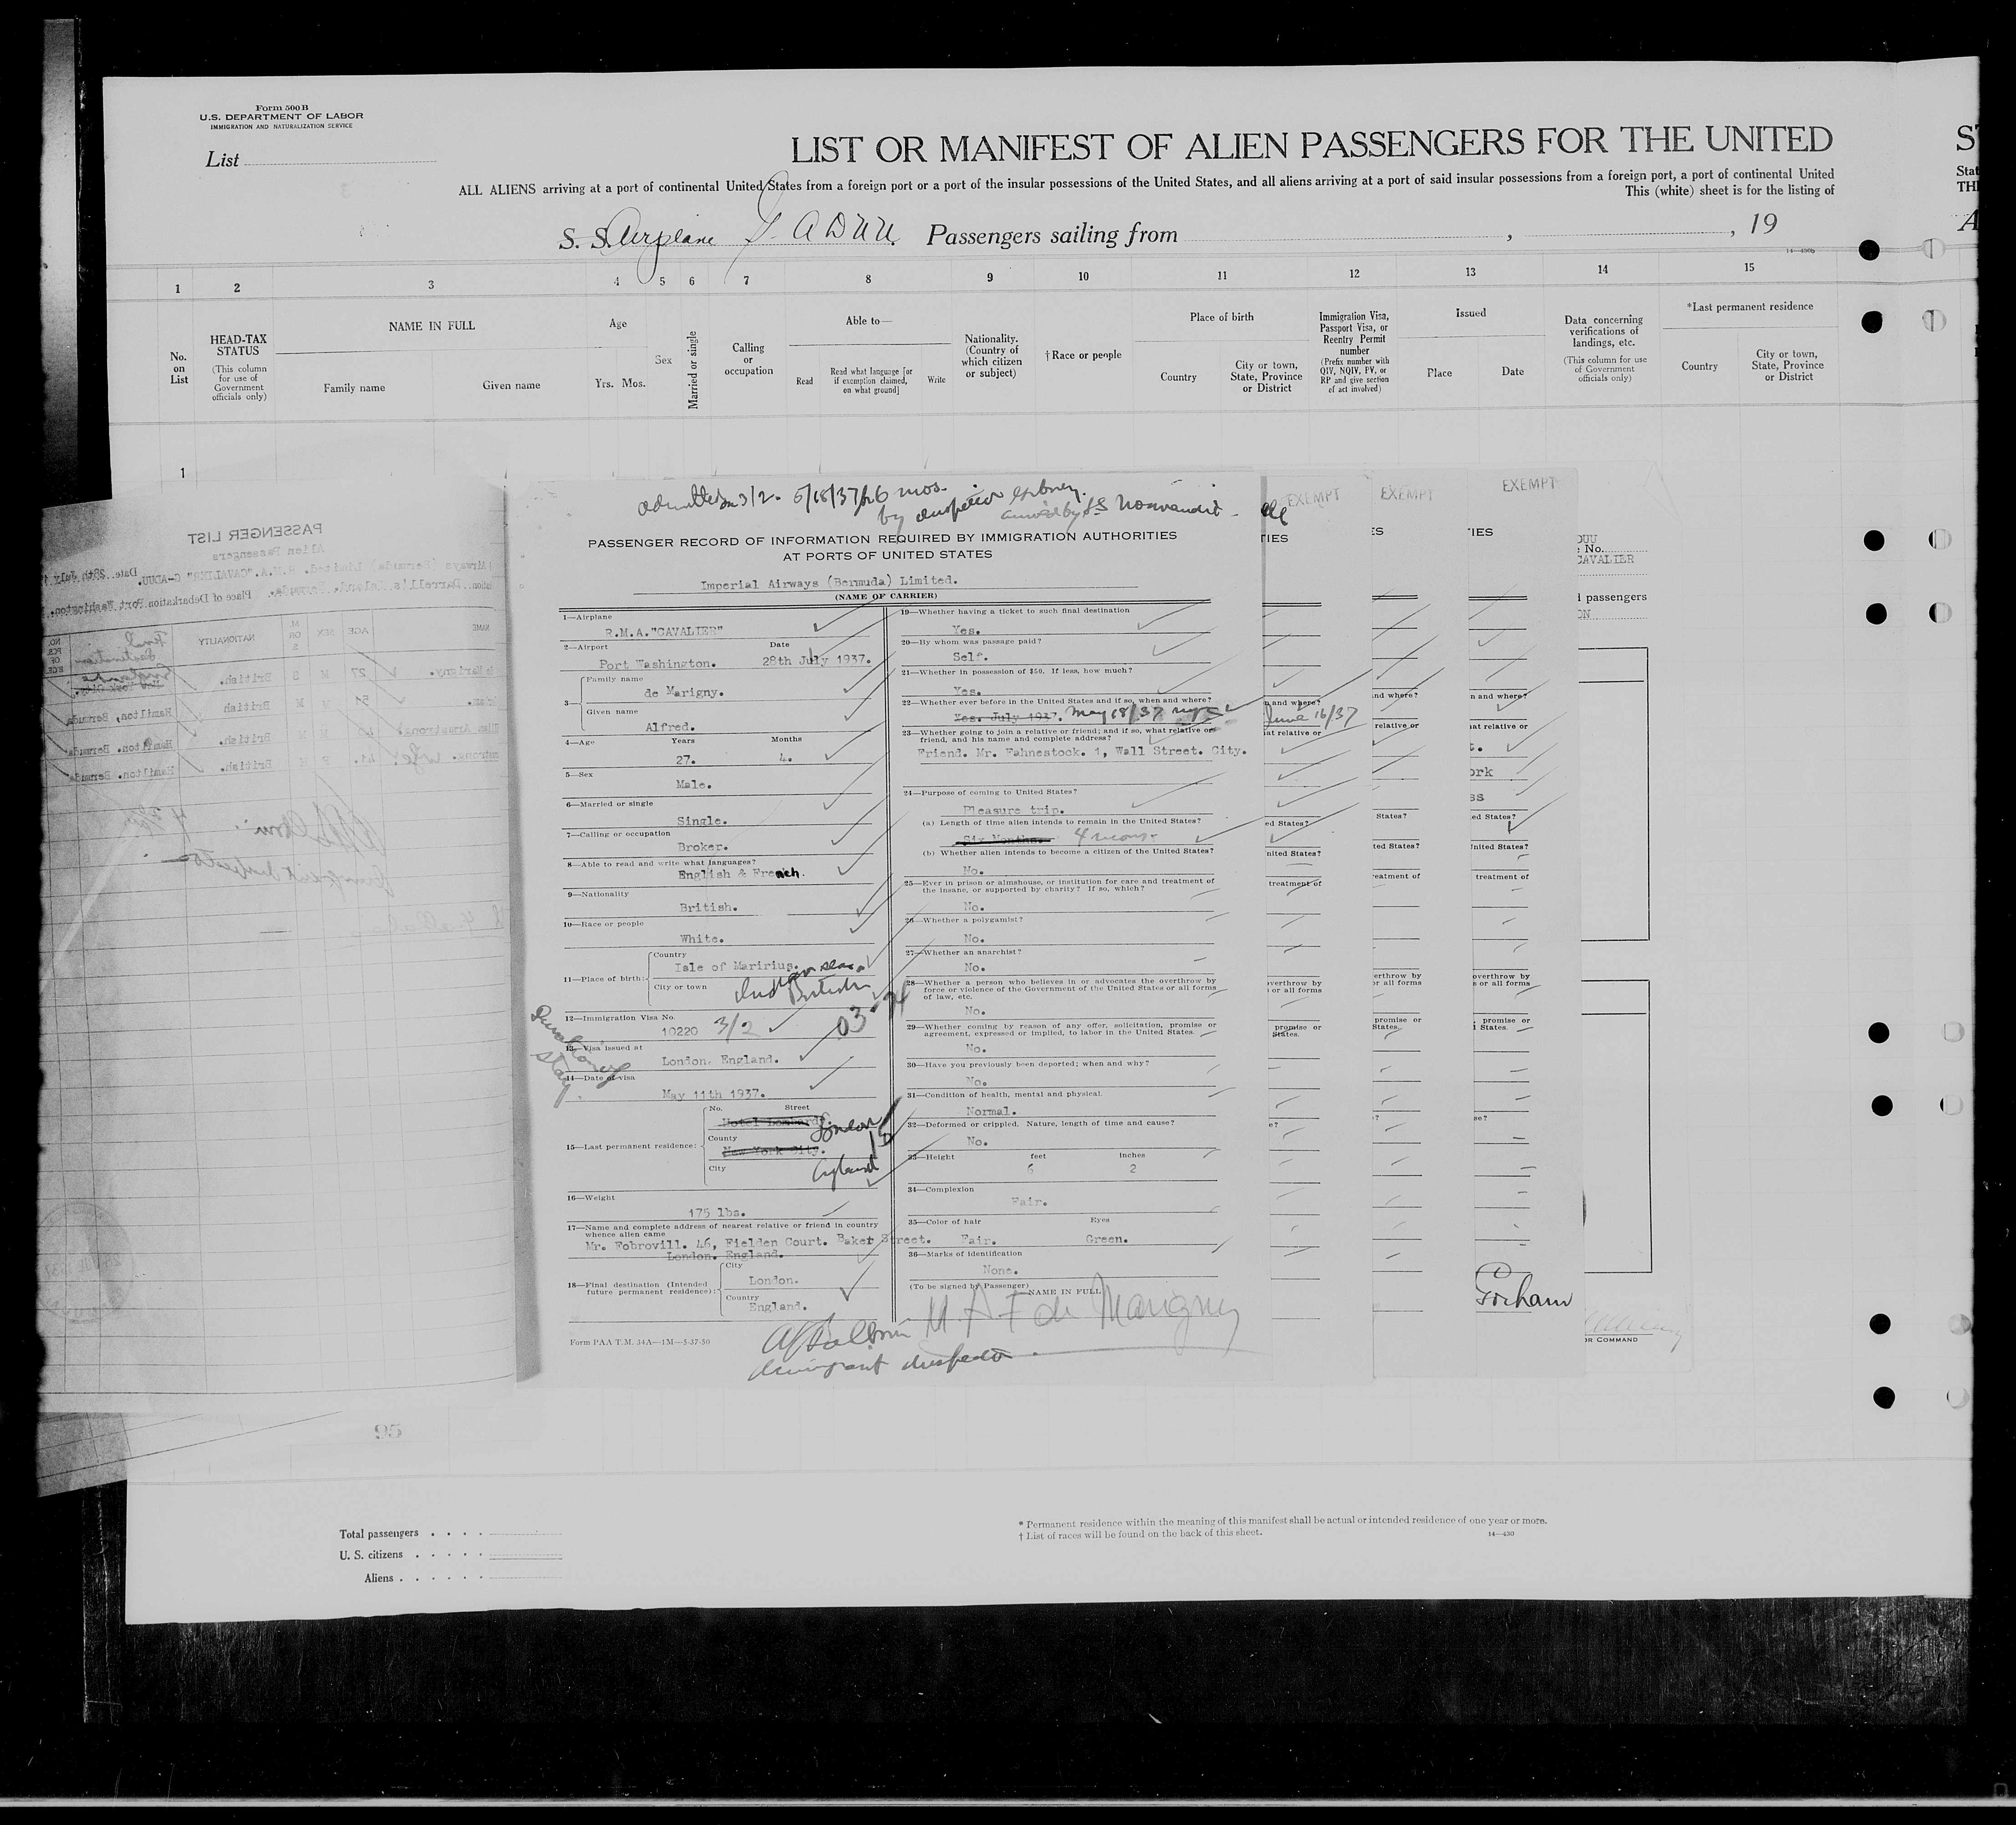 Form 500B
U.S. DEPARTMENT OF LABOR
IMMIGRATION AND NATURALIZATION SERVICE
List
LIST OR MANIFEST OF ALIEN PASSENGERS FOR THE UNITED
ALL ALIENS arriving at a port of continental United States from a foreign port or a port of the insular possessions of the United States, and all aliens arriving at a port of said insular possessions from a foreign port, a port of continental United
This (white) sheet is for the listing of
S. S. Airplane G ADUU Passengers sailing from , , 19
1 2 3 4 5 6 7 8 9 10 11 12 13 14 15
No. on List
HEAD-TAX STATUS
(This column for use of Government officials only)
NAME IN FULL
Family name Given name
Age
Yrs. Mos.
Sex
Married or single
Calling or occupation
Able to—
Read
Read what language [or if exemption claimed, on what ground]
Write
Nationality. (Country of which citizen or subject)
† Race or people
Place of birth
Country
City or town, State, Province or District
Immigration Visa, Passport Visa, or Reentry Permit number
(Prefix number with QIV, NQIV, PV, or RP and give section of act involved)
Issued
Place Date
Data concerning verifications of landings, etc.
(This column for use of Government officials only)
*Last permanent residence
Country
City or town, State, Province or District
1
PASSENGER LIST
Alien Passengers
Airways (Bermuda) Limited. R.M.A. "CAVALIER" G-ADUU. Date. 28th July
Darrell's Island. Bermuda. Place of Debarkation Port Washington.
NAME AGE SEX M OR S NATIONALITY Final Destination
de Marigny. 27 M S British.
51 M M British Hamilton, Bermuda
Armstrong. British. Hamilton. Bermuda
wife British. Hamilton. Bermuda
admitted 3/2. 5/18/37 6 mos.
by inspector
arrived by SS Normandie
PASSENGER RECORD OF INFORMATION REQUIRED BY IMMIGRATION AUTHORITIES
AT PORTS OF UNITED STATES
Imperial Airways (Bermuda) Limited.
(NAME OF CARRIER)
1—Airplane
R.M.A."CAVALIER"
2—Airport Date
Port Washington. 28th July 1937.
3—
Family name
de Marigny.
Given name
Alfred.
4—Age Years Months
27. 4.
5—Sex
Male.
6—Married or single
Single.
7—Calling or occupation
Broker.
8—Able to read and write what languages?
English & French.
9—Nationality
British.
10—Race or people
White.
11—Place of birth:
Country
Isle of Maririus.
City or town
12—Immigration Visa No.
10220 3/2
13—Visa issued at
London. England.
14—Date of visa
May 11th 1937.
15—Last permanent residence:
No. Street
Hotel Lombardy.
County
New York City.
City
London
England
16—Weight
175 lbs.
17—Name and complete address of nearest relative or friend in country
whence alien came
Mr. Fobrovill. 46, Fielden Court. Baker Street.
London. England.
18—Final destination (Intended
future permanent residence):
City
London.
Country
England.
Form PAA T.M. 34A—1M—5-37-50
19—Whether having a ticket to such final destination
Yes.
20—By whom was passage paid?
Self.
21—Whether in possession of $50. If less, how much?
Yes.
22—Whether ever before in the United States and if so, when and where?
Yes. July 1937. May 18/37 nyc
23—Whether going to join a relative or friend; and if so, what relative or
friend, and his name and complete address?
Friend. Mr. Fahnestock. 1, Wall Street. City.
24—Purpose of coming to United States?
Pleasure trip.
(a) Length of time alien intends to remain in the United States?
Six Months. 4 mons.
(b) Whether alien intends to become a citizen of the United States?
No.
25—Ever in prison or almshouse, or institution for care and treatment of
the insane, or supported by charity? If so, which?
No.
26—Whether a polygamist?
No.
27—Whether an anarchist?
No.
28—Whether a person who believes in or advocates the overthrow by
force or violence of the Government of the United States or all forms
of law, etc.
No.
29—Whether coming by reason of any offer, solicitation, promise or
agreement, expressed or implied, to labor in the United States.
No.
30—Have you previously been deported; when and why?
No.
31—Condition of health, mental and physical.
Normal.
32—Deformed or crippled. Nature, length of time and cause?
No.
33—Height feet inches
6 2
34—Complexion
Fair.
35—Color of hair Eyes
Fair. Green.
36—Marks of identification
None.
(To be signed by Passenger)
NAME IN FULL
M. A F de Marigny
Immigrant Inspector
EXEMPT
EXEMPT
EXEMPT
June 16/37
CAVALIER
passengers
Gorham
OR COMMAND
95
Total passengers
U. S. citizens
Aliens
* Permanent residence within the meaning of this manifest shall be actual or intended residence of one year or more.
† List of races will be found on the back of this sheet.
14—430